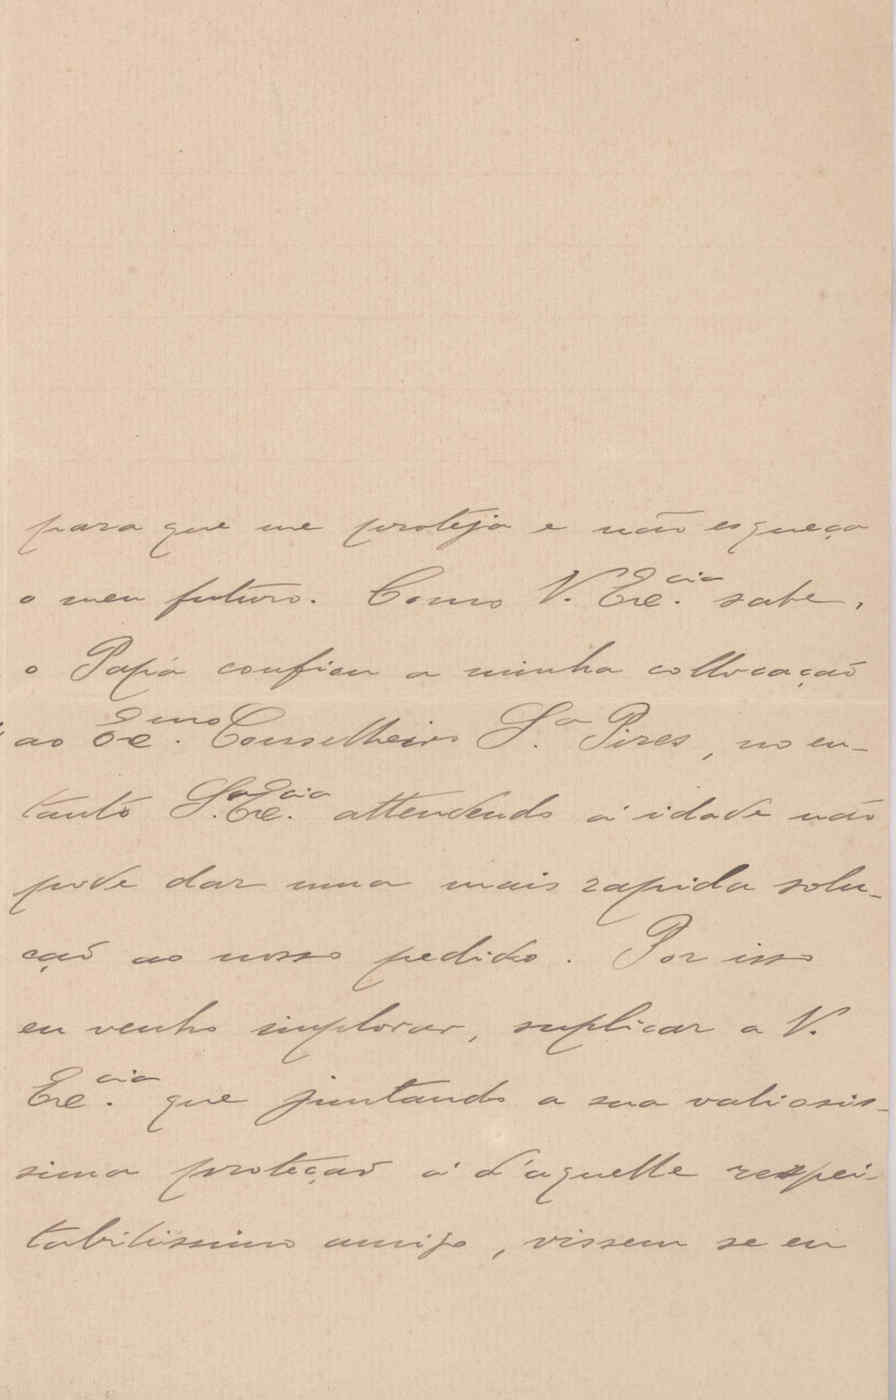 para que me proteja e não esqueça
o meu futuro. Como V. Exc.cia sabe,
o Papá confiou a minha collocação
ao Exc.mo Conselheiro S.a Pires, no en-
tanto S.a Exc.cia attendendo á idade não
pode dar uma mais rapida solu-
ção ao nosso pedido. Por isso
eu venho implorar, suplicar a V.
Exc.cia que juntando a sua valiosis-
sima proteção á d'aquelle respei-
tabilissimo amigo, vissem se eu